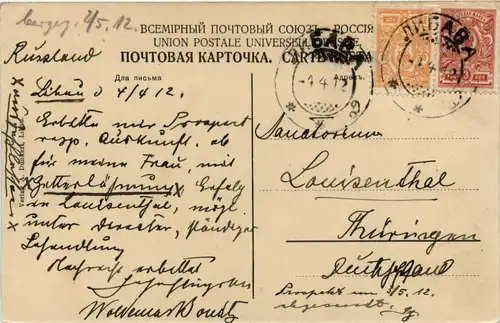 2/5. 12.
ВСЕМІРНЫЙ ПОЧТОВЫЙ СОЮЗЪ. РОССІЯ
UNION POSTALE UNIVERSELLE
ПОЧТОВАЯ КАРТОЧКА.
Russland
Для письма
Адресъ
ЛИБАВА
-4.4.12
Libau d 4/4 12.
Erbitte mir Prospect
resp. Auskunft, ob
für meine Frau, mit
Erfolg
in Louisenthal, mögl.
unter Director, ständiger
Behandlung
Nachricht erbittet
Woldemar
Sanatorium
Louisenthal
Thüringen
Deutschland
Prospekt am 3/5. 12.
abgesandt.